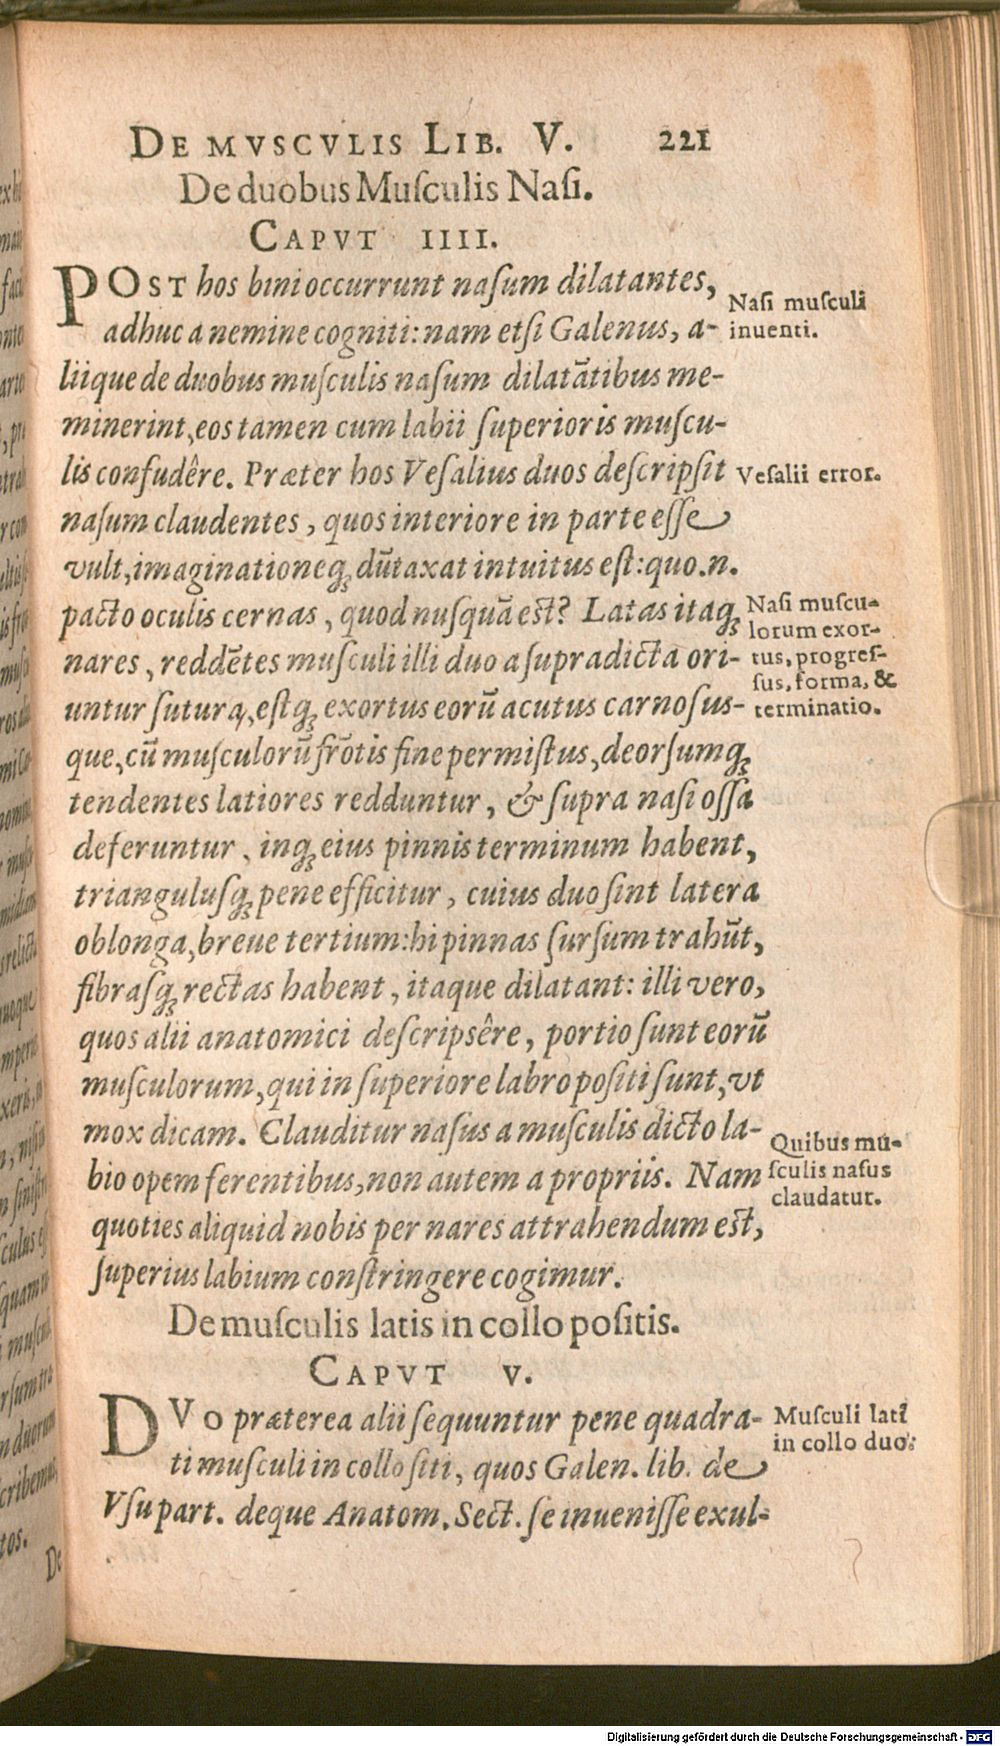 DE MVSCVLIS LIB. V. 221
De duobus Muſculis Naſi.
CAPVT IIII.
POST hos bini occurrunt naſum dilatantes,
adhuc a nemine cogniti: nam etſi Galenus, a-
liique de duobus muſculis naſum dilatātibus me-
minerint, eos tamen cum labii ſuperioris muſcu-
lis confudêre. Præter hos Veſalius duos deſcripſit
naſum claudentes, quos interiore in parte eſſe
vult, imaginationeq́; dūtaxat intuitus eſt: quo.n.
pacto oculis cernas, quod nuſquā est? Latas itaq;
nares, reddētes muſculi illi duo a ſupradicta ori-
untur ſutura, eſtq́; exortus eorū acutus carnoſus-
que, cū muſculorū frōtis fine permiſtus, deorſumq́;
tendentes latiores redduntur, & ſupra naſi oſſa
deferuntur, inq́; eius pinnis terminum habent,
triangulusq́; pene efficitur, cuius duo ſint latera
oblonga, breue tertium: hi pinnas ſurſum trahūt,
fibraſq́; rectas habent, itaque dilatant: illi vero,
quos alii anatomici deſcripsêre, portio ſunt eorū
muſculorum, qui in ſuperiore labro poſiti ſunt, vt
mox dicam. Clauditur naſus a muſculis dicto la-
bio opem ferentibus, non autem a propriis. Nam
quoties aliquid nobis per nares attrahendum est,
ſuperius labium conſtringere cogimur.
De muſculis latis in collo poſitis.
CAPVT V.
DVO præterea alii ſequuntur pene quadra-
ti muſculi in collo ſiti, quos Galen. lib. de
Vſu part. deque Anatom. Sect. ſe inueniſſe exul-
Naſi muſculi
inuenti.
Veſalii error.
Naſi muſcu-
lorum exor-
tus, progreſ-
ſus, forma, &
terminatio.
Quibus mu-
ſculis naſus
claudatur.
Muſculi lati
in collo duo.
ex
facu
arte
cribemus
tos.
De
Digitalisierung gefördert durch die Deutsche Forschungsgemeinschaft - DFG